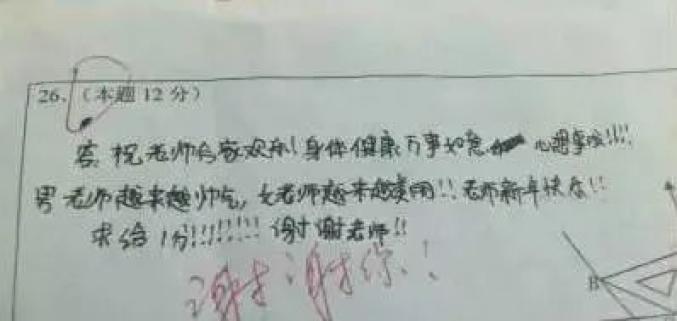 26.（本题 12 分）
答: 祝老师合家欢乐! 身体健康 万事如意 心想事成!!!!
男老师越来越帅气, 女老师越来越漂亮!! 老师新年快乐!!
求给 1分!!!!!!!! 谢谢老师!!
谢谢你!
B